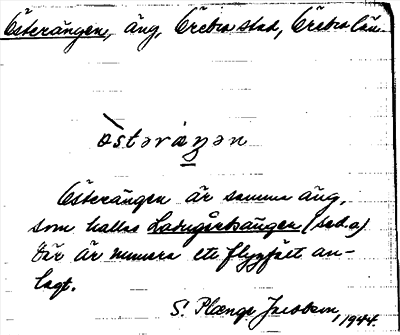 Österängen, äng, Örebro stad, Örebro län.
òstəráŋən
Österängen är samma äng,
som kallas Ladugårdsängen (se d.o)
Där är numera ett flygfält an-
lagt.
S. Plænge Jacobson, 1944.